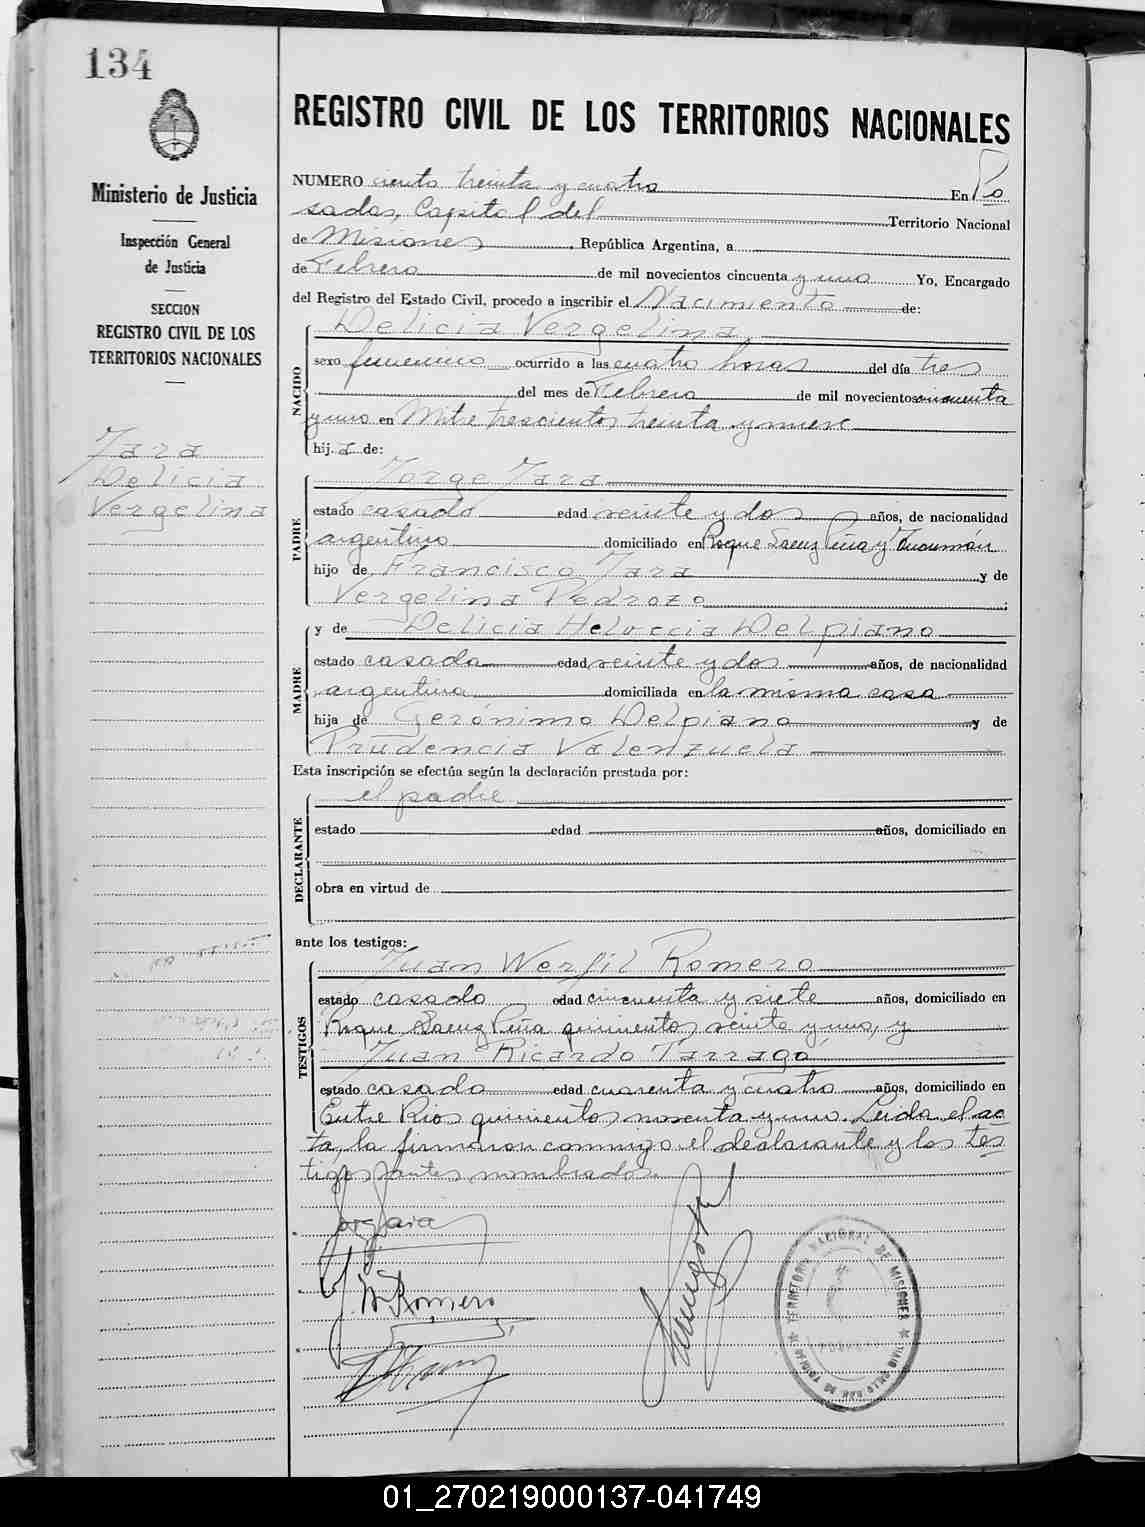 134
Ministerio de Justicia
Inspección General
de Justicia
SECCION
REGISTRO CIVIL DE LOS
TERRITORIOS NACIONALES
Jara
Delicia
Vergelina
REGISTRO CIVIL DE LOS TERRITORIOS NACIONALES
NUMERO ciento treinta y cuatro En Po
sadas, Capital del Territorio Nacional
de Misiones, República Argentina, a
de Febrero de mil novecientos cincuenta y uno Yo, Encargado
del Registro del Estado Civil, procedo a inscribir el Nacimiento de:
Delicia Vergelina
NACIDO
sexo femenino ocurrido a las cuatro horas del día tres
del mes de Febrero de mil novecientos cincuenta
y uno en Mitre trescientos treinta y nueve
hij.a de:
PADRE
Jorge Jara
estado casado edad veinte y dos años, de nacionalidad
argentino domiciliado en Roque Saenz Peña y Tucumán
hijo de Francisco Jara y de
Vergelina Pedrozo
MADRE
y de Delicia Helvecia Delpiano
estado casada edad veinte y dos años, de nacionalidad
argentina domiciliada en la misma casa
hija de Gerónimo Delpiano y de
Prudencia Valenzuela
Esta inscripción se efectúa según la declaración prestada por:
DECLARANTE
el padre
estado edad años, domiciliado en
obra en virtud de
ante los testigos:
TESTIGOS
Juan Werfil Romero
estado casado edad cincuenta y siete años, domiciliado en
Roque Saenz Peña quinientos veinte y uno, y
Juan Ricardo Tarragó
estado casado edad cuarenta y cuatro años, domiciliado en
Entre Rios quinientos noventa y uno. Leida el ac
ta, la firmaron conmigo el declarante y los tes
tigos antes nombrados
Jorge Jara
J. W. Romero
TERRITORIO NACIONAL DE MISIONES
01_270219000137-041749